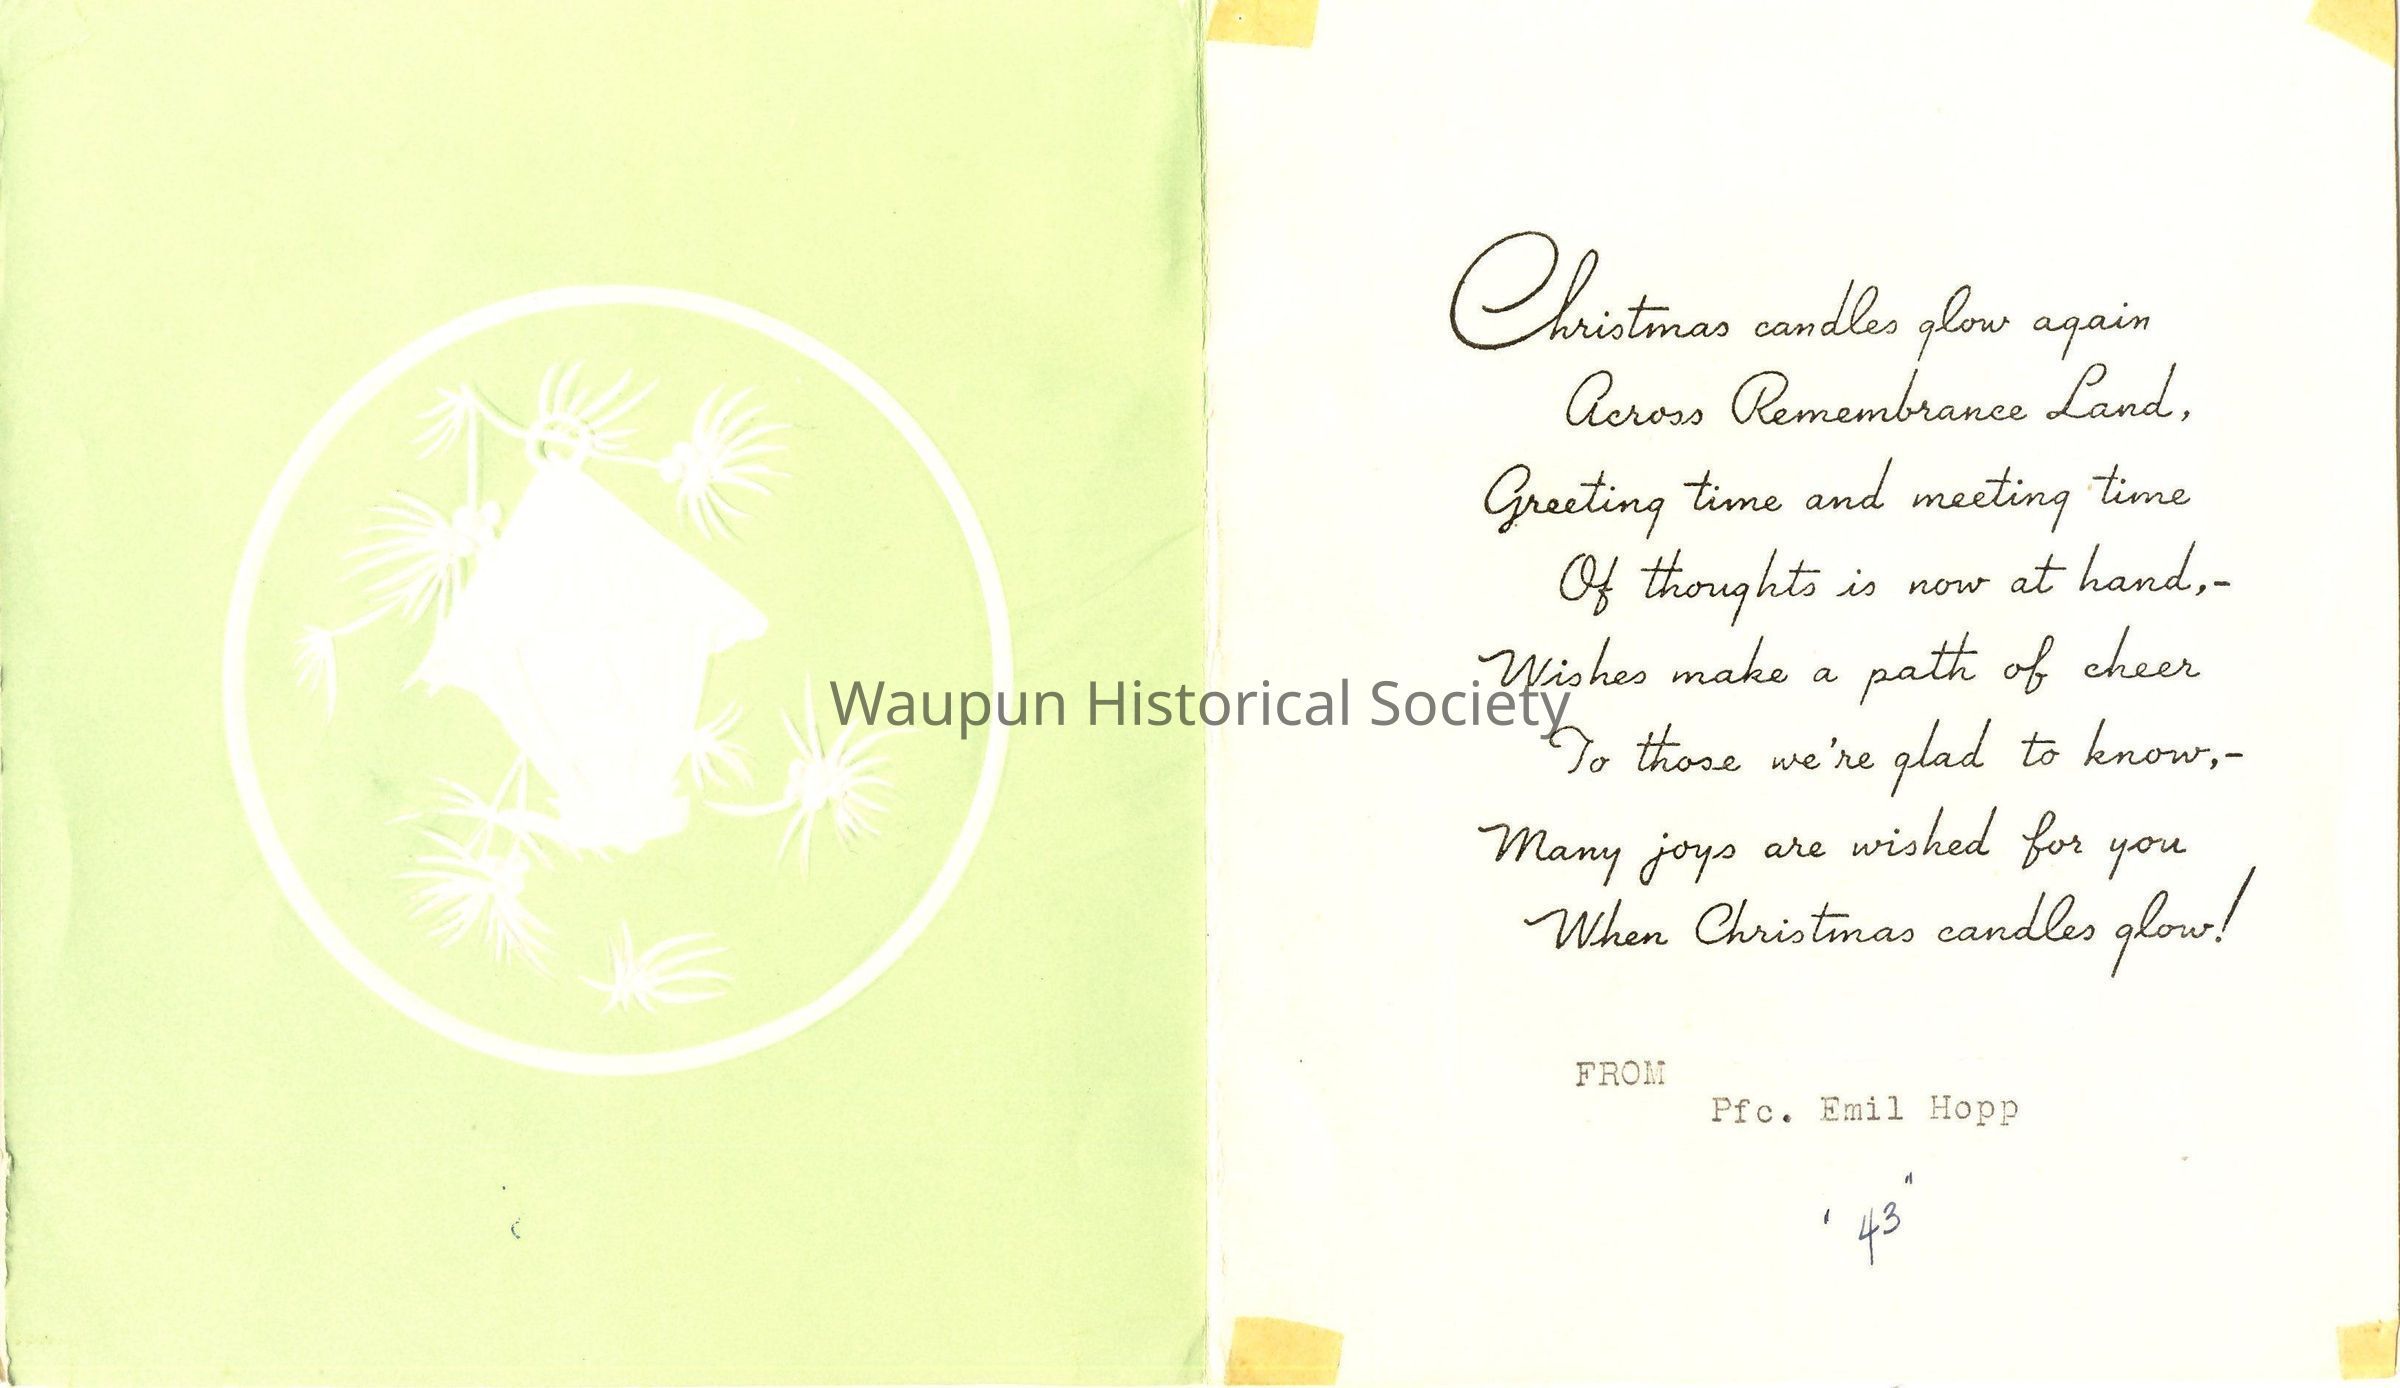 Christmas candles glow again
Across Remembrance Land,
Greeting time and meeting time
Of thoughts is now at hand,-
Wishes make a path of cheer
Waupun Historical Society
To those we're glad to know,-
Many joys are wished for you
When Christmas candles glow!
FROM
Pfc. Emil Hopp
' 43 "